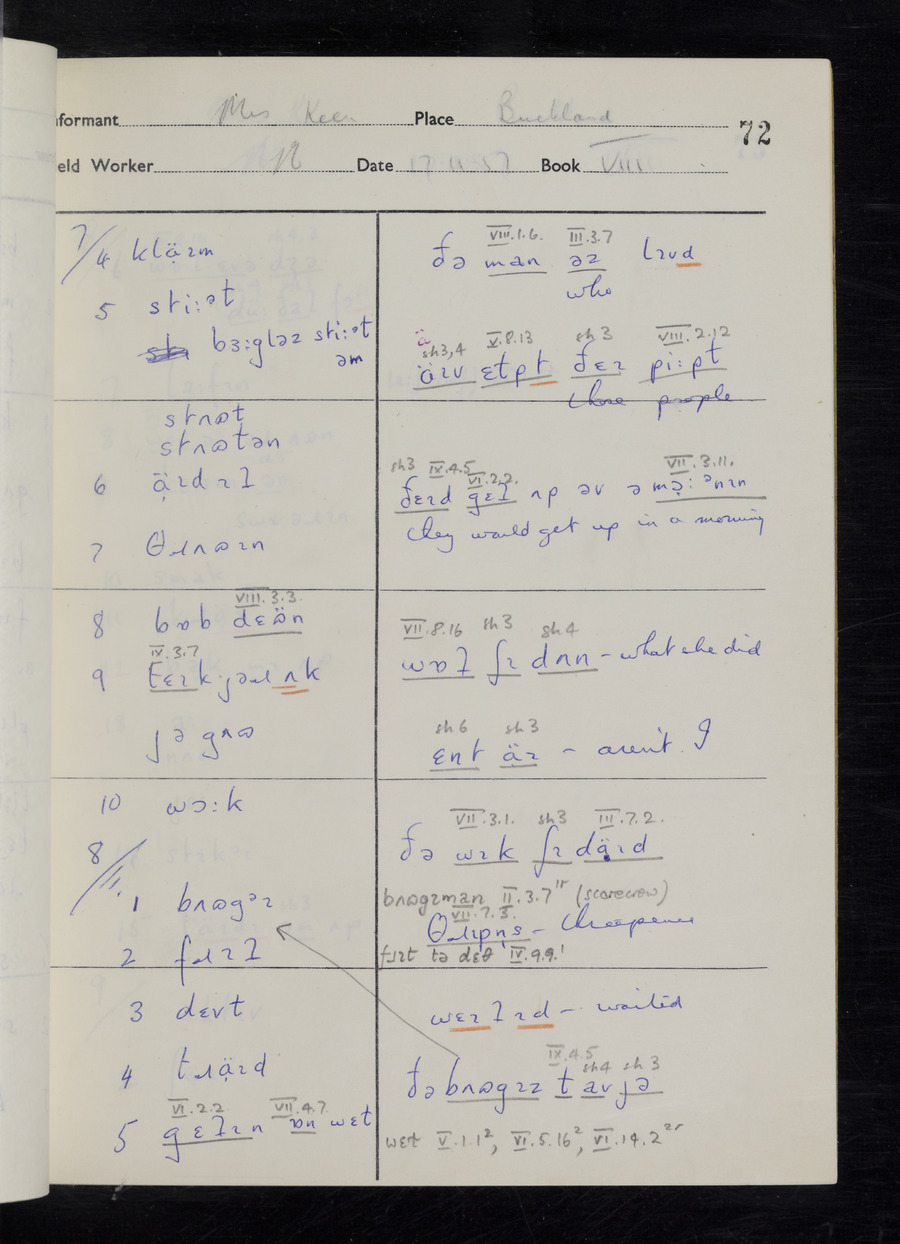 nformant Mrs Keen Place Buckland 72
eld Worker Date 17.11.57 Book VIII
7/4 klär̈m
5 stiːᵊt
bɜːgləz stiːᵊt
əm
strʌɷt
strʌɷtən
6 ạ̈ɪdɪʔ
7 θɹʌɷɪn
VIII.3.3.
8 bɒb dɛɷ̈n
IX.3.7
9 tɛɪk jəɹ ʌk
jə gʌɷ
10 wɔːk
8/
1 bʌɷgᵊɪ
2 fɹɪʔ
3 dɛvt
4 tɹạ̈ɪd
VI.2.2. VII.4.7
5 gɛʔɪn ɒn wɛt
VIII.1.6. III.3.7
ðə man əz lɪvd
who
sh3,4 V.8.13 sh 3 VIII.2.12
äɪv ɛtpt ðɛɪ piːpt
those people
sh3 IX.4.5 VI.2.2. VII.3.11.
ðɛɪd gɛʔ ʌp əv ə mə̣ːᵊnɪn
they would get up in a morning
VII.8.16 sh3 sh4
wɒʔ ʃɪ dʌn – what she did
sh6 sh3
ɛnt äɪ – aren't I
VII.3.1. sh3 III.7.2.
ðə wɪk ʃɪ däɪd
bʌɷgɪman II.3.7 (scarecrow)
VII.7.3.
θɹɪpns – threepence
fɹɪt tə dɛθ IV.9.9.¹
wɛɪʔɪd – waited
IX.4.5 sh4 sh 3
ðə bʌɷgɪz t av jə
wɛt V.1.1², VI.5.16², VI.14.2